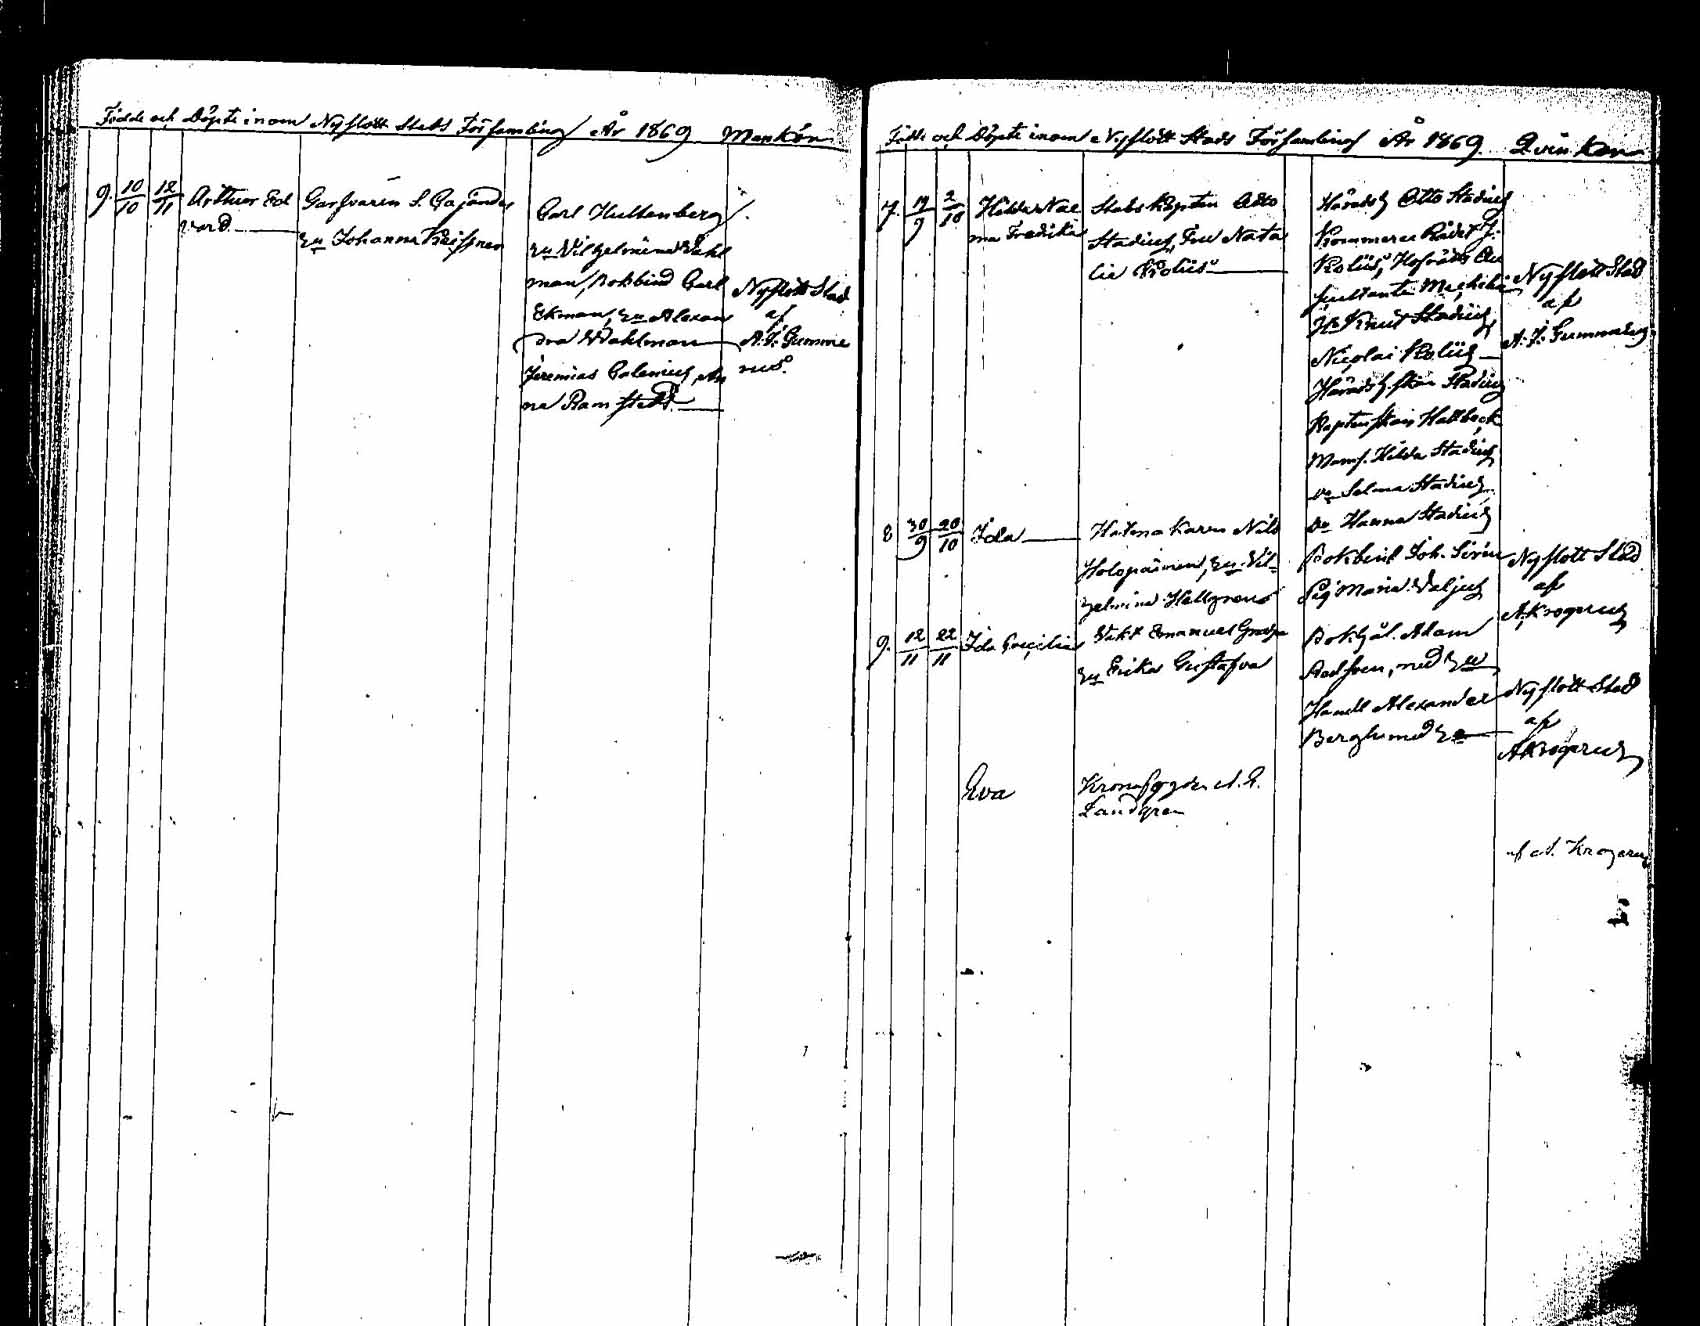 Födde och Döpte inom Nyslott Stads Församling År 1869 Mankön
9. 10/10 12/11 Arthur Ed
vard
Garfvaren S. Gajander
Johanna
Carl Hultenberg
Vilhelmina Wahl
man, Bokbind Carl
Ekman, Alexan
dra Wahlman
Jeremias Calenius, An
na Ramstedt
Nyslott Stad
af
A. F. Gumme
rus.
Födde och Döpte inom Nyslott Stads Församling År 1869. Qvinkön
7. 19/9 2/10 Hilda Nae
ma Fredrika
Stabs Kapten Otto
Stadius, Fru Nata
lie
Häradsh Otto Stadius
Kommerce Rådet J.
Hofrätts Au
scultante
Hr Knut Stadius
Nicolai
Häradsh.skan Stadius
Kaptenskan Hallbeck
Mams. Hilda Stadius
Do Selma Stadius
Do Hanna Stadius
Nyslott Stad
af
A. F. Gummerus
8 30/9 20/10 Ida
Nils
Holopainen, Vil-
helmina Hellgren
Bokbind Joh. Sirén
Pig Maria Valjus
Nyslott Stad
af
A Krogerus
9. 12/11 22/11 Ida Cecilia
Vakt Emanuel
Erika Gustafva
Bokhål. Adam
med
Handl Alexander
Bergh med
Nyslott Stad
af
A Krogerus
Eva
Kronofogden A. E.
Landgren
af A. Krogerus